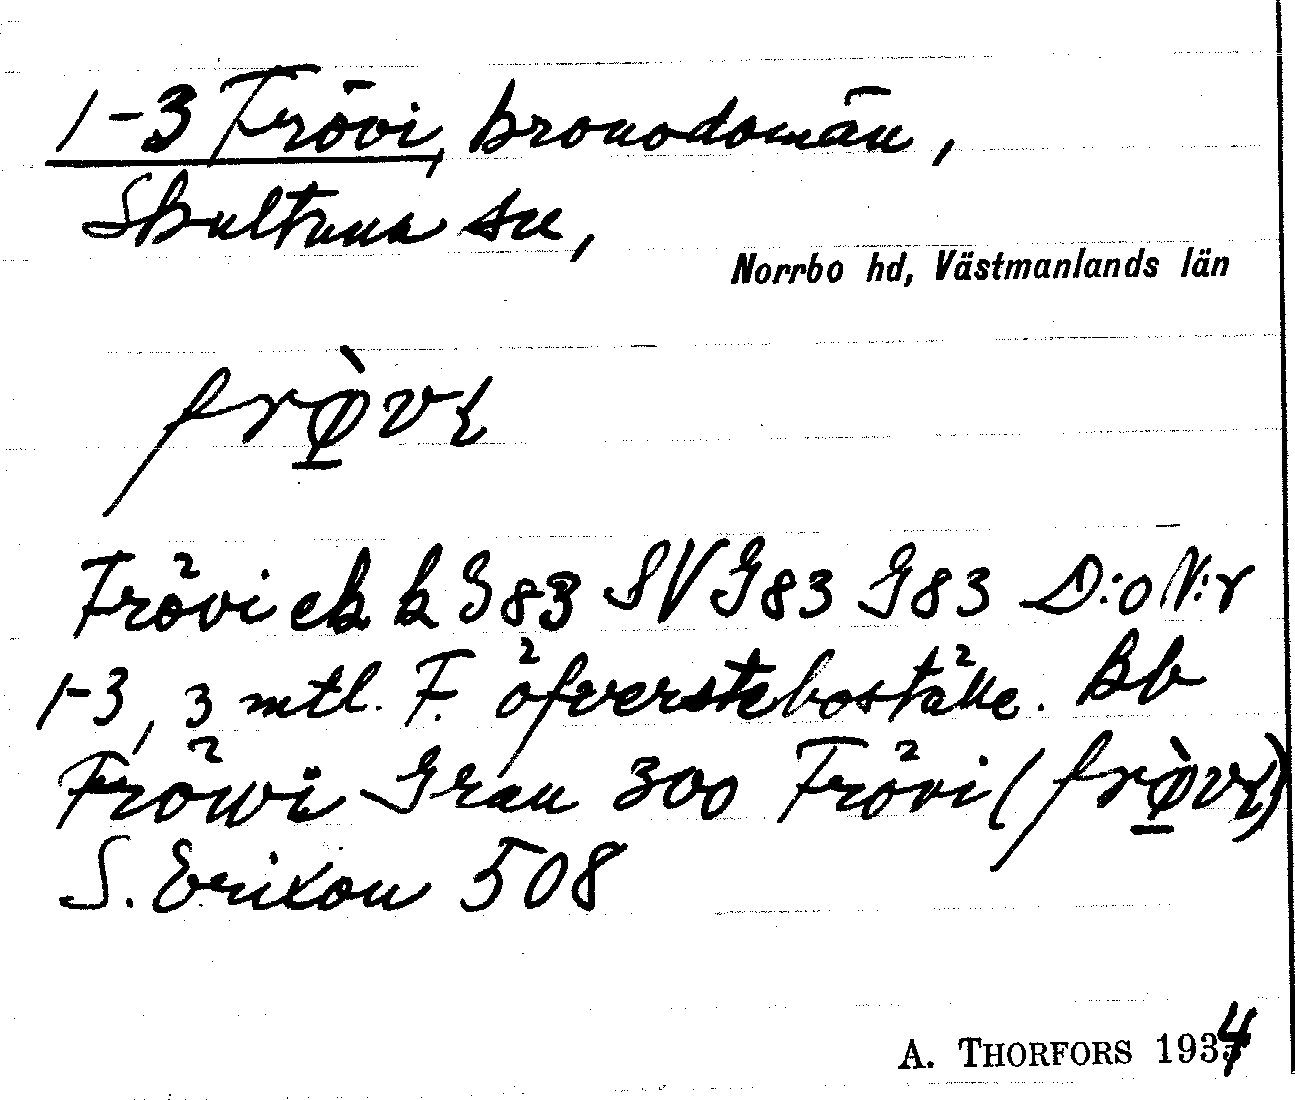 1-3 Frövi, kronodomän,
Skultuna sn,
Norrbo hd, Västmanlands län
frø̱̀vɩ
Frövi ek k G 83 SV G 83 G 83 D:o N:r
1-3, 3 mtl. F. öfversteboställe. Bb
Fröwi Grau 300 Frövi (frø̱̀vɩ)
S. Erixon 508
A. THORFORS 1934